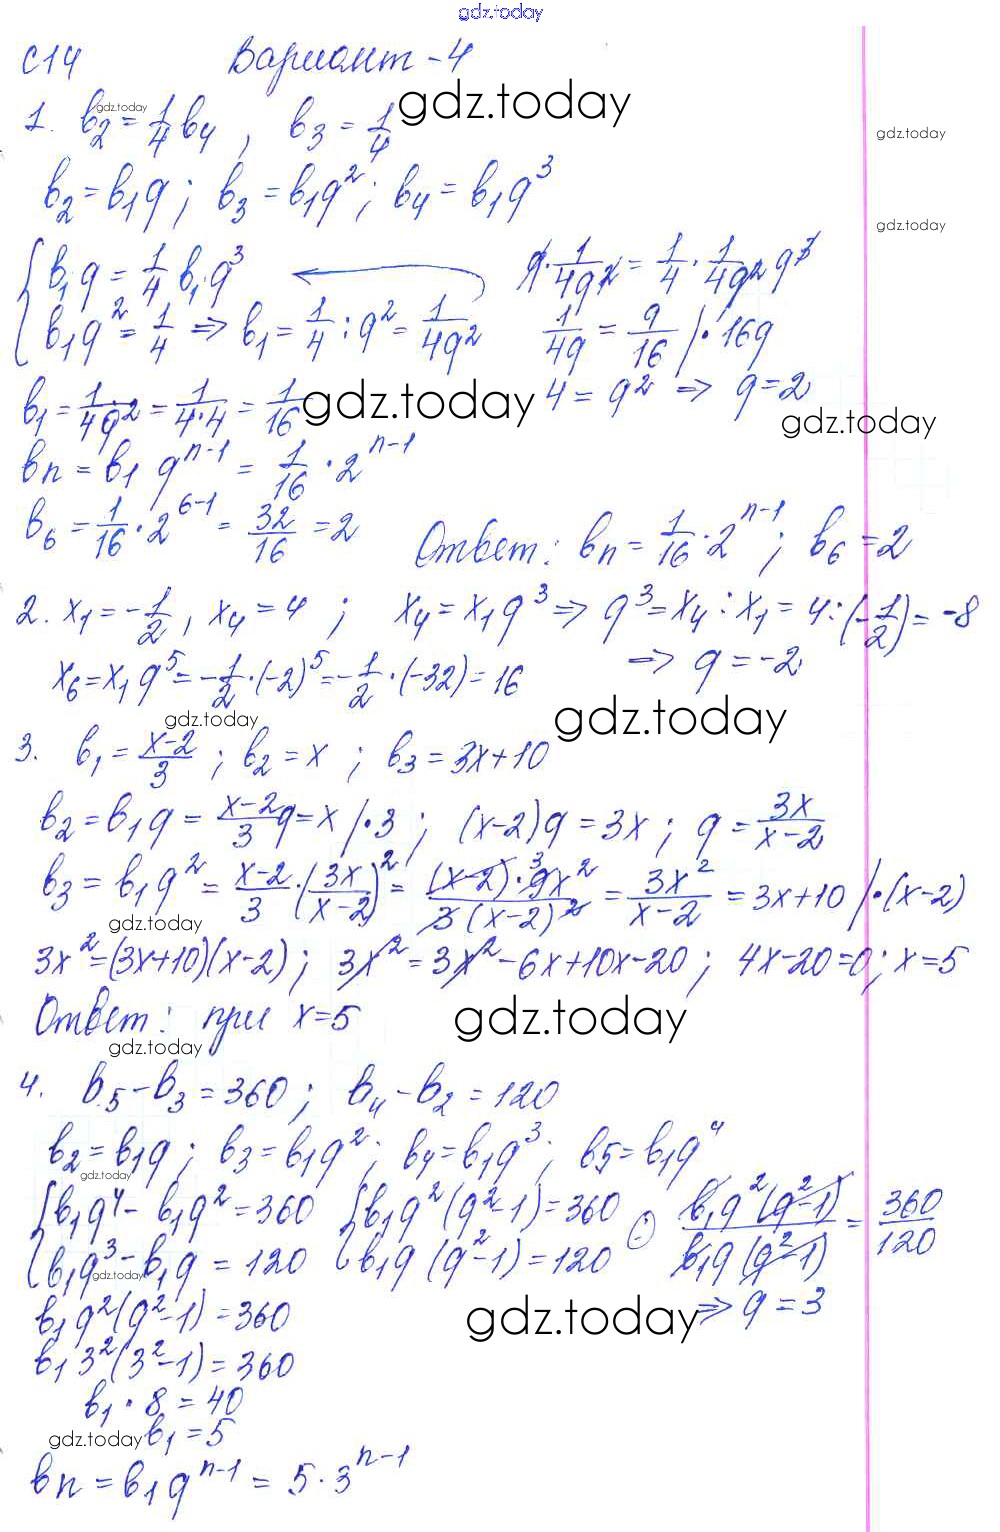 gdz.today
С14 Вариант-4
gdz.today
1. b₂ = 1/4 b₄, b₃ = 1/4
gdz.today
gdz.today
b₂ = b₁q; b₃ = b₁q²; b₄ = b₁q³
gdz.today
{ b₁q = 1/4 b₁q³ q · 1/4q² = 1/4 · 1/4q² q³
b₁q² = 1/4 => b₁ = 1/4 : q² = 1/4q² 1/4q = q/16 | · 16q
b₁ = 1/4q² = 1/4·4 = 1/16 4 = q² => q = 2
gdz.today
gdz.today
bn = b₁ qⁿ⁻¹ = 1/16 · 2ⁿ⁻¹
b₆ = 1/16 · 2⁶⁻¹ = 32/16 = 2 Ответ: bn = 1/16 · 2ⁿ⁻¹; b₆ = 2
2. x₁ = -1/2, x₄ = 4; x₄ = x₁q³ => q³ = x₄ : x₁ = 4 : (-1/2) = -8
x₆ = x₁q⁵ = -1/2 · (-2)⁵ = -1/2 · (-32) = 16 => q = -2
gdz.today
gdz.today
3. b₁ = x-2/3; b₂ = x; b₃ = 3x+10
b₂ = b₁q = x-2/3 q = x | · 3; (x-2)q = 3x; q = 3x/x-2
b₃ = b₁q² = x-2/3 · (3x/x-2)² = (x-2) · 9³x²/3(x-2)² = 3x²/x-2 = 3x+10 | · (x-2)
gdz.today
3x² = (3x+10)(x-2); 3x² = 3x² - 6x + 10x - 20; 4x - 20 = 0; x = 5
Ответ: при x = 5
gdz.today
gdz.today
4. b₅ - b₃ = 360; b₄ - b₂ = 120
b₂ = b₁q; b₃ = b₁q²; b₄ = b₁q³; b5 = b₁q⁴
gdz.today
{ b₁q⁴ - b₁q² = 360 { b₁q²(q²-1) = 360 (:) b₁q²(q²-1)/b₁q(q²-1) = 360/120
b₁q³ - b₁q = 120 b₁q(q²-1) = 120
gdz.today
b₁q²(q²-1) = 360 => q = 3
gdz.today
b₁ 3²(3²-1) = 360
b₁ · 8 = 40
b₁ = 5
gdz.today
bn = b₁qⁿ⁻¹ = 5 · 3ⁿ⁻¹